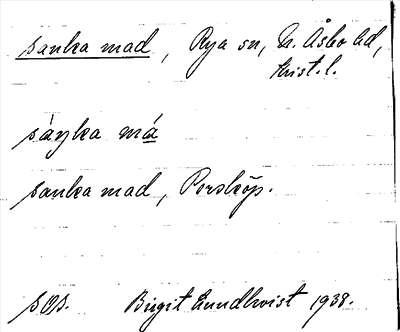 sanka mad, Rya sn, N. Åsbo hd,
Krist. l.
sáŋka má
sanka mad, Perstorp.
sOs. Birgit Lundkvist 1938.